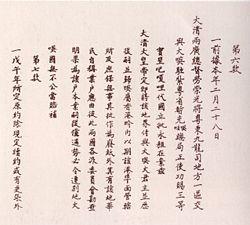 第六款
一前據本年二月二十八日
大清兩廣總督勞崇光將粵東九龍司地方一區交
與大𠸄駐紮粵省暫充𠸄㖕總局正使功賜三等
寶星巴夏禮代國立批永租在案茲
大清大皇帝定即將該地界付與大𠸄大君主並歷
後嗣並歸𠸄屬香港界內以期該港埠面管轄
所及庶保無事其批作為廢紙外其有該地華
民自稱業戶應由彼此兩國各派委員會勘查
明果為該戶本業嗣後倘遇勢必令遷別地大
𠸄國無不公當賠補
第七款
一戊午年所定原約除現定續約或有更張外